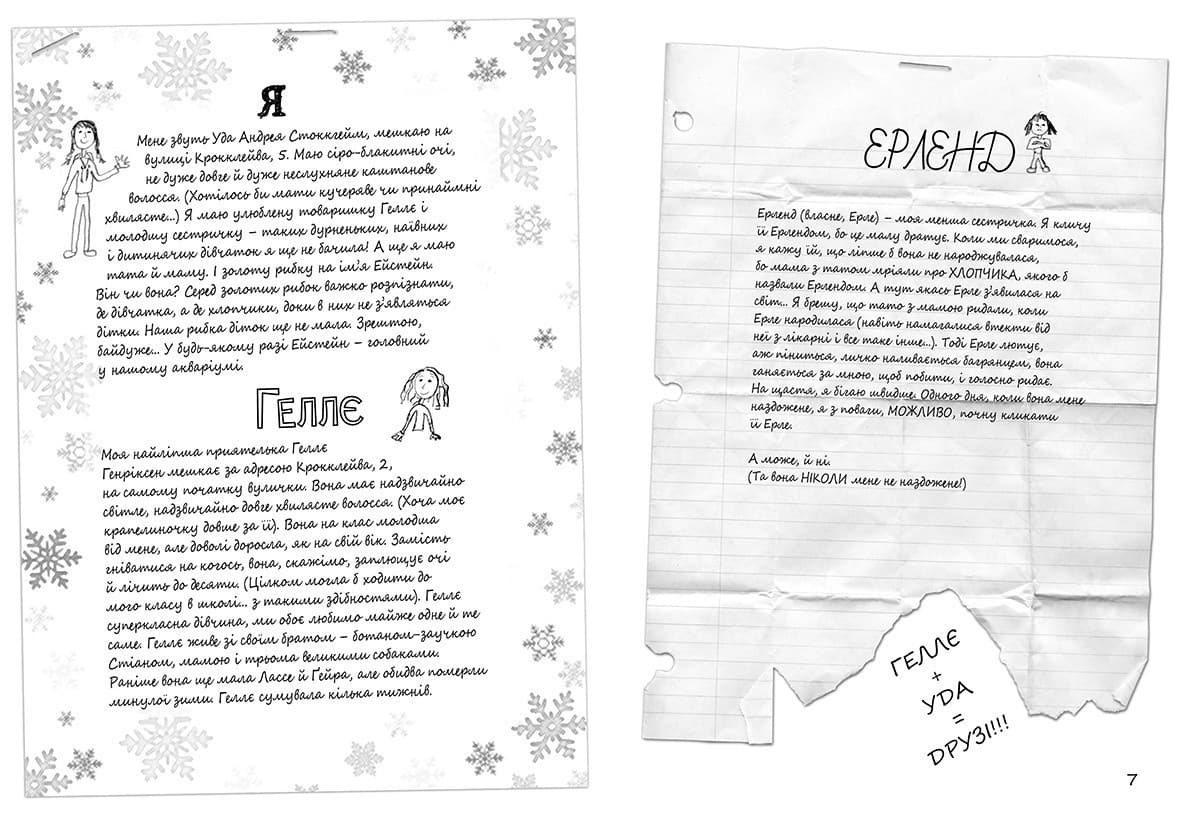 Я
Мене звуть Уда Андрея Стоккгейм, мешкаю на
вулиці Крокклейва, 5. Маю сіро-блакитні очі,
не дуже довге й дуже неслухняне каштанове
волосся. (Хотілось би мати кучеряве чи принаймні
хвилясте...) Я маю улюблену товаришку Геллє і
молодшу сестричку – таких дурненьких, наївних
і дитинячих дівчаток я ще не бачила! А ще я маю
тата й маму. І золоту рибку на ім’я Ейстейн.
Він чи вона? Серед золотих рибок важко розпізнати,
де дівчатка, а де хлопчики, доки в них не з’являться
дітки. Наша рибка діток ще не мала. Зрештою,
байдуже... У будь-якому разі Ейстейн – головний
у нашому акваріумі.
ГЕЛЛЄ
Моя найліпша приятелька Геллє
Генріксен мешкає за адресою Крокклейва, 2,
на самому початку вулички. Вона має надзвичайно
світле, надзвичайно довге хвилясте волосся. (Хоча моє
крапелиночку довше за її). Вона на клас молодша
від мене, але доволі доросла, як на свій вік. Замість
гніватися на когось, вона, скажімо, заплющує очі
й лічить до десяти. (Цілком могла б ходити до
мого класу в школі... з такими здібностями). Геллє
суперкласна дівчина, ми обоє любимо майже одне й те
саме. Геллє живе зі своїм братом – ботаном-заучкою
Стіаном, мамою і трьома великими собаками.
Раніше вона ще мала Лассе й Ґейра, але обидва померли
минулої зими. Геллє сумувала кілька тижнів.
ЕРЛЕНД
Ерленд (власне, Ерле) – моя менша сестричка. Я кличу
її Ерлендом, бо це малу дратує. Коли ми сваримося,
я кажу їй, що ліпше б вона не народжувалася,
бо мама з татом мріяли про ХЛОПЧИКА, якого б
назвали Ерлендом. А тут якась Ерле з’явилася на
світ... Я брешу, що тато з мамою ридали, коли
Ерле народилася (навіть намагалися втекти від
неї з лікарні і все таке інше...). Тоді Ерле лютує,
аж піниться, личко наливається багрянцем, вона
ганяється за мною, щоб побити, і голосно ридає.
На щастя, я бігаю швидше. Одного дня, коли вона мене
наздожене, я з поваги, МОЖЛИВО, почну кликати
її Ерле.
А може, й ні.
(Та вона НІКОЛИ мене не наздожене!)
ГЕЛЛЄ
+
УДА
=
ДРУЗІ!!!
7